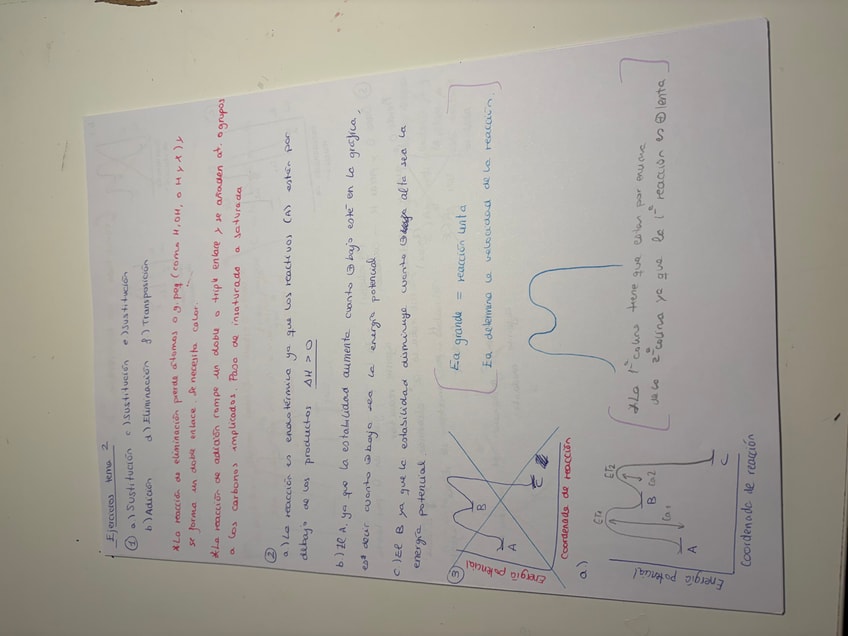 Ejercicios tema 2
① a) Sustitución c) Sustitución e) Sustitución
b) Adición d) Eliminación f) Transposición
*La reacción de eliminación pierde átomos o g. peq (como H, OH, o H y x) y
se forma un doble enlace. Se necesita calor.
*La reacción de adición rompe un doble o triple enlace y se añaden át. o grupos
a los carbonos implicados. Pasa de insaturado a saturado
② a) La reacción es endotérmica ya que los reactivos (A) están por
debajo de los productos ΔH > 0
b) El A, ya que la estabilidad aumenta cuanto ⊕ bajo esté en la gráfica,
es decir cuanto ⊕ bajo sea la energía potencial
c) El B ya que la estabilidad disminuye cuanto ⊕ alta sea la
energía potencial
③
Energía potencial
A
B
C
Coordenada de reacción
Ea grande = reacción lenta
Ea determina la velocidad de la reacción.
a)
Energía potencial
ET1
ET2
Ea1
Ea2
A
B
C
Coordenada de reacción
*La 1ª colina tiene que estar por encima
de la 2ª colina ya que la 1ª reacción es ⊕ lenta